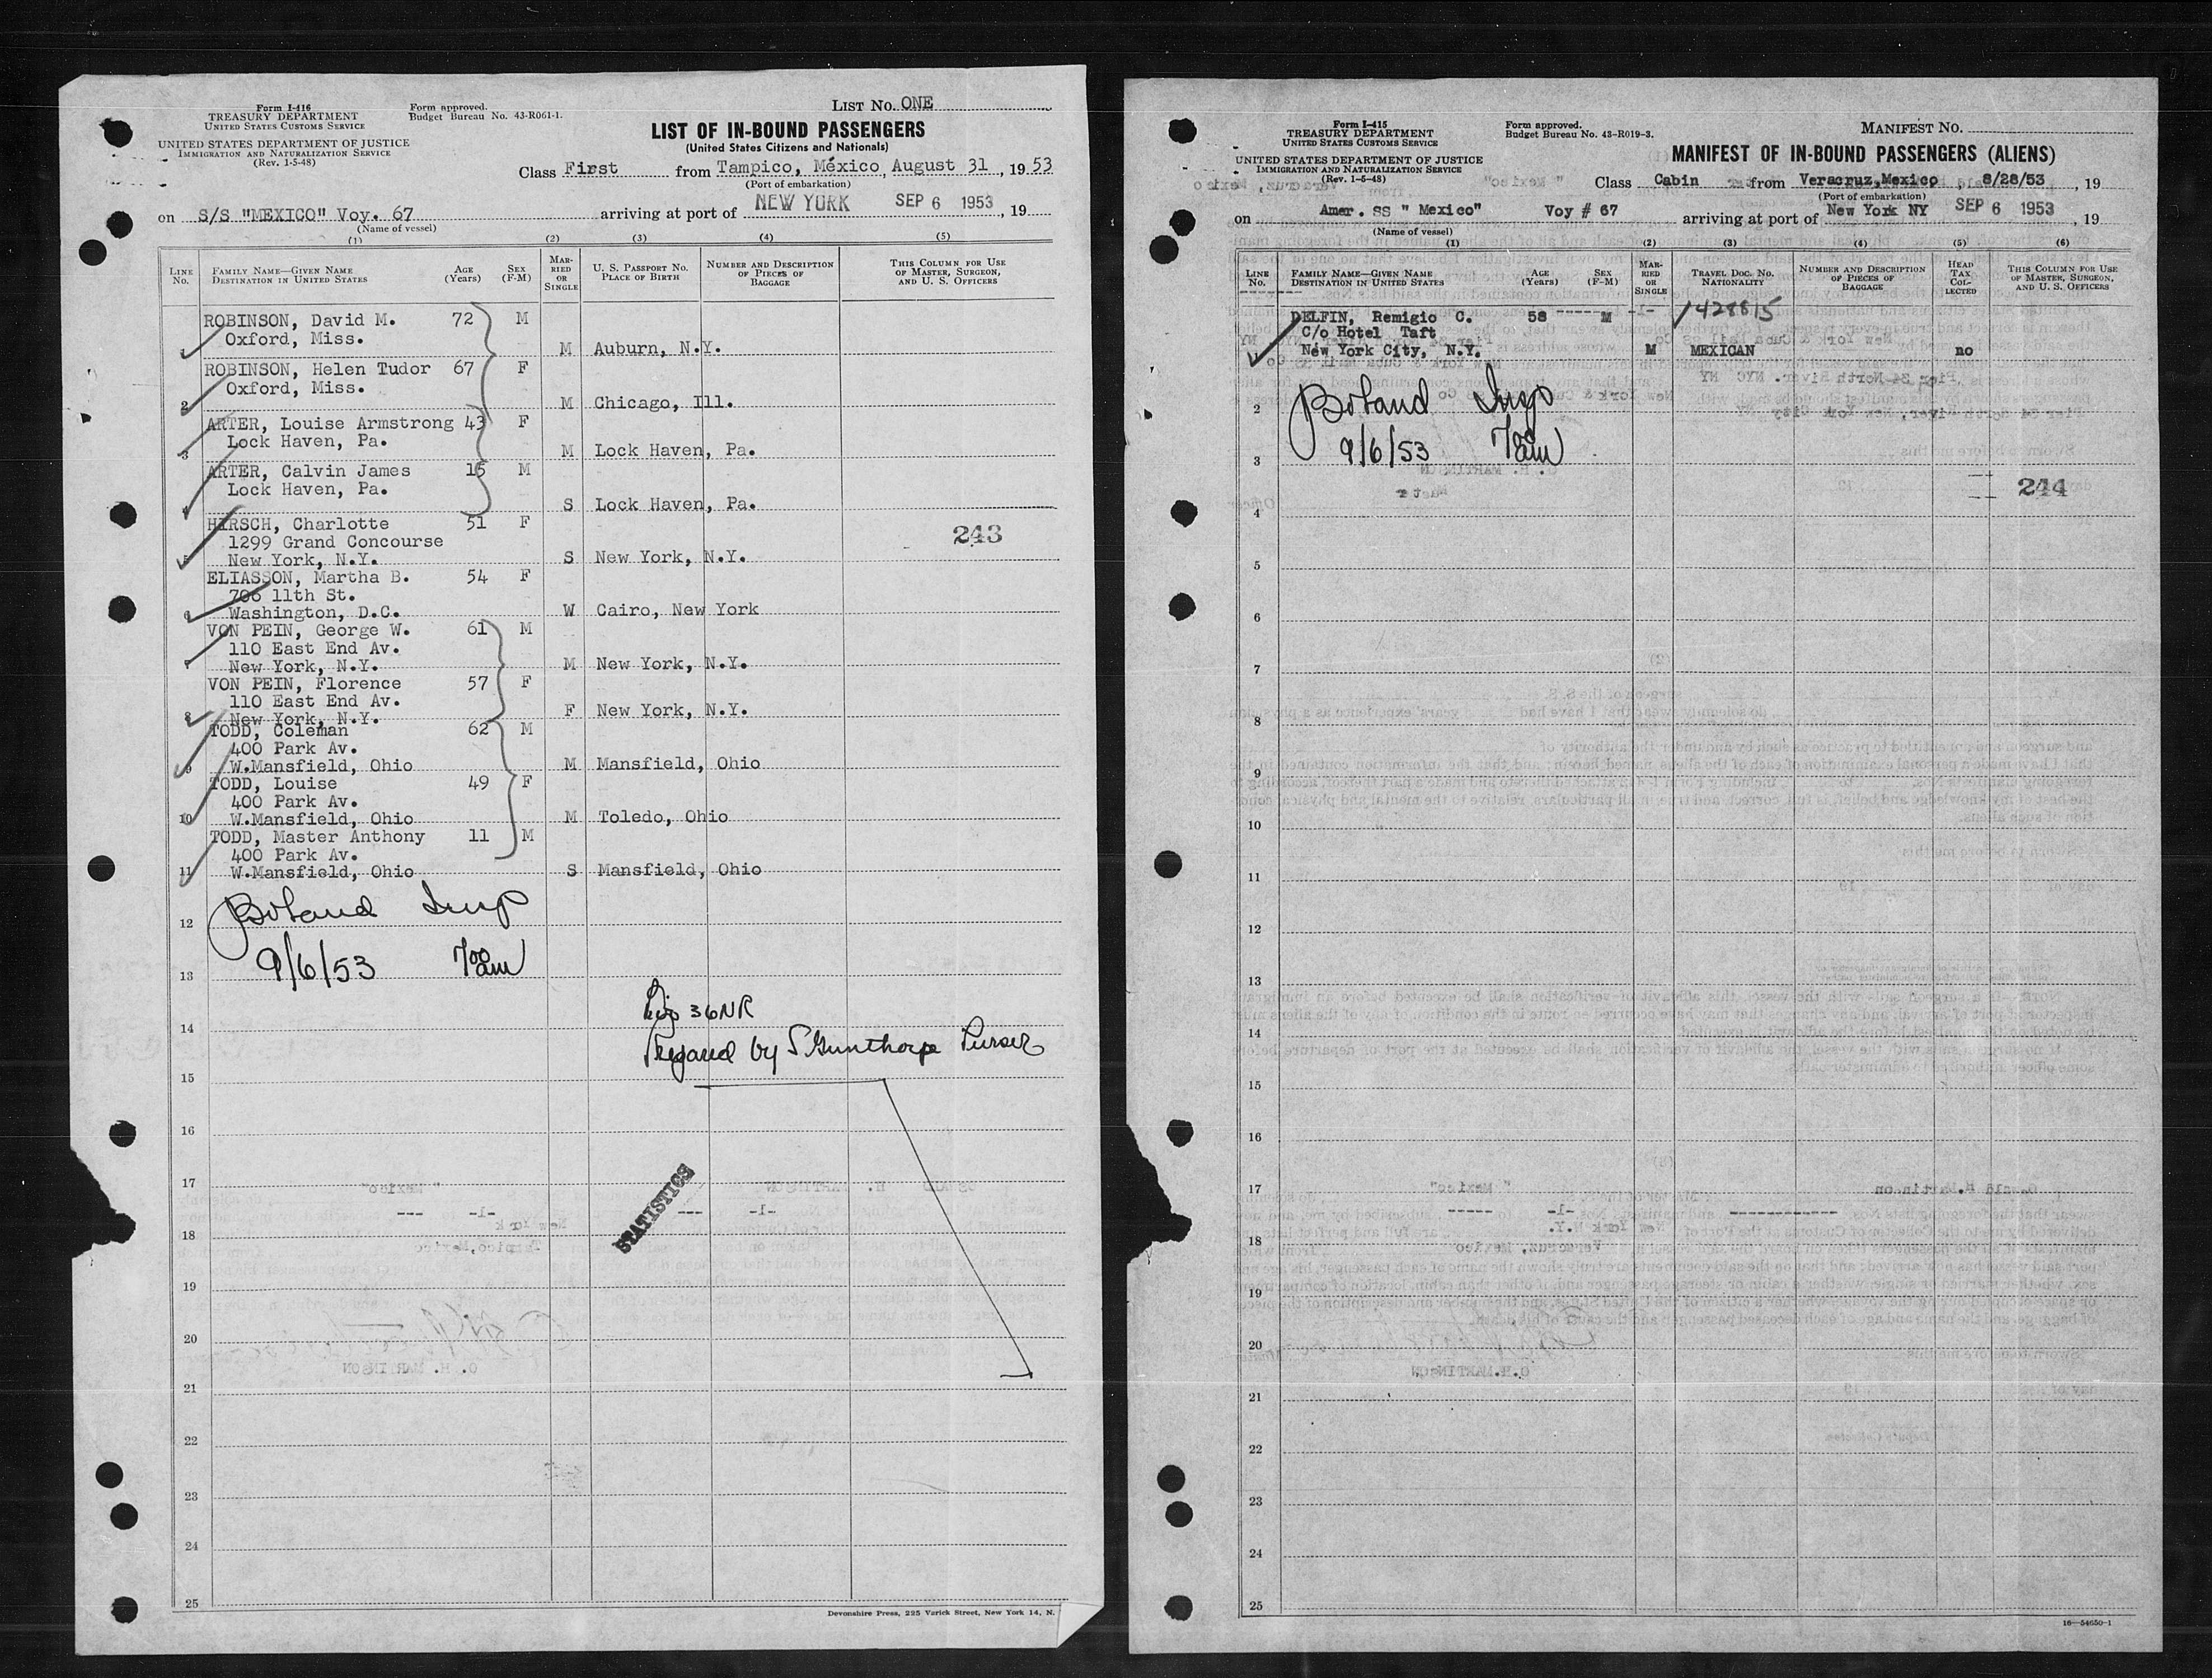 Form I-416
TREASURY DEPARTMENT
UNITED STATES CUSTOMS SERVICE
UNITED STATES DEPARTMENT OF JUSTICE
IMMIGRATION AND NATURALIZATION SERVICE
(Rev. 1-5-48)
Form approved.
Budget Bureau No. 43-R061-1.
LIST No. ONE
LIST OF IN-BOUND PASSENGERS
(United States Citizens and Nationals)
Class First from Tampico, México, August 31, 1953
(Port of embarkation)
on S/S "MEXICO" Voy. 67 arriving at port of NEW YORK SEP 6 1953, 19
(Name of vessel)
(1) (2) (3) (4) (5)
LINE No. FAMILY NAME—GIVEN NAME DESTINATION IN UNITED STATES AGE (Years) SEX (F-M) MARRIED OR SINGLE U. S. PASSPORT NO. PLACE OF BIRTH NUMBER AND DESCRIPTION OF PIECES OF BAGGAGE THIS COLUMN FOR USE OF MASTER, SURGEON, AND U. S. OFFICERS
ROBINSON, David M. 72 M
Oxford, Miss.
1 M Auburn, N.Y.
ROBINSON, Helen Tudor 67 F
Oxford, Miss.
2 M Chicago, Ill.
ARTER, Louise Armstrong 43 F
Lock Haven, Pa.
3 M Lock Haven, Pa.
ARTER, Calvin James 15 M
Lock Haven, Pa.
4 S Lock Haven, Pa.
HIRSCH, Charlotte 51 F
1299 Grand Concourse 243
5 New York, N.Y. S New York, N.Y.
ELIASSON, Martha B. 54 F
706 11th St.
6 Washington, D.C. W Cairo, New York
VON PEIN, George W. 61 M
110 East End Av.
7 New York, N.Y. M New York, N.Y.
VON PEIN, Florence 57 F
110 East End Av.
8 New York, N.Y. F New York, N.Y.
TODD, Coleman 62 M
400 Park Av.
9 W.Mansfield, Ohio M Mansfield, Ohio
TODD, Louise 49 F
400 Park Av.
10 W.Mansfield, Ohio M Toledo, Ohio
TODD, Master Anthony 11 M
400 Park Av.
11 W.Mansfield, Ohio S Mansfield, Ohio
Boland Insp
12
9/6/53 7 00 am
13
36NR
14
Prepared by S Gunthorpe Purser
15
16
17
STATISTICS
18
19
20
21
22
23
24
25
Devonshire Press, 225 Varick Street, New York 14, N.
Form I-415
TREASURY DEPARTMENT
UNITED STATES CUSTOMS SERVICE
UNITED STATES DEPARTMENT OF JUSTICE
IMMIGRATION AND NATURALIZATION SERVICE
(Rev. 1-5-48)
Form approved.
Budget Bureau No. 43-R019-3.
MANIFEST NO.
MANIFEST OF IN-BOUND PASSENGERS (ALIENS)
Class Cabin from Veracruz,Mexico, 8/28/53, 19
(Port of embarkation)
on Amer. SS " Mexico" Voy # 67 arriving at port of New York NY SEP 6 1953, 19
(Name of vessel)
(1) (2) (3) (4) (5) (6)
LINE No. FAMILY NAME—GIVEN NAME DESTINATION IN UNITED STATES AGE (Years) SEX (F-M) MARRIED OR SINGLE TRAVEL DOC. NO. NATIONALITY NUMBER AND DESCRIPTION OF PIECES OF BAGGAGE HEAD TAX COLLECTED THIS COLUMN FOR USE OF MASTER, SURGEON, AND U. S. OFFICERS
1428815
DELFIN, Remigio C. 58 M -1-
C/o Hotel Taft
1 New York City, N.Y. M MEXICAN no
Boland Insp
2
9/6/53 7 00 am
3
244
4
5
6
7
8
9
10
11
12
13
14
15
16
17
18
19
20
21
22
23
24
25
16—54650-1